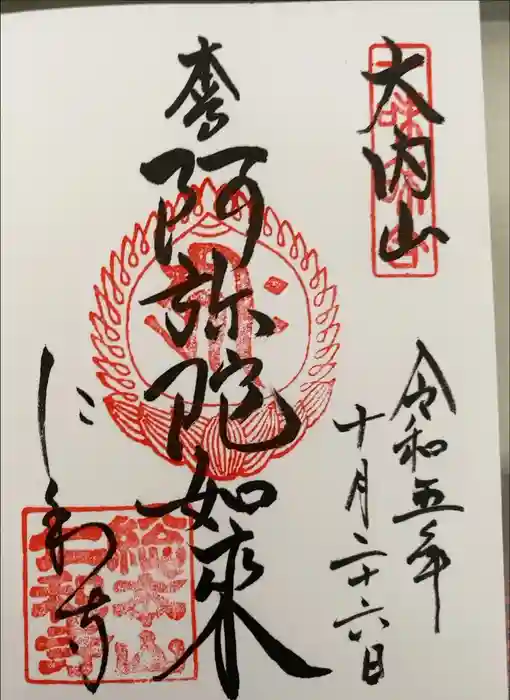 大内山
令和五年
十月二十六日
奉
阿弥陀如来
仁和寺
総本山
仁和寺